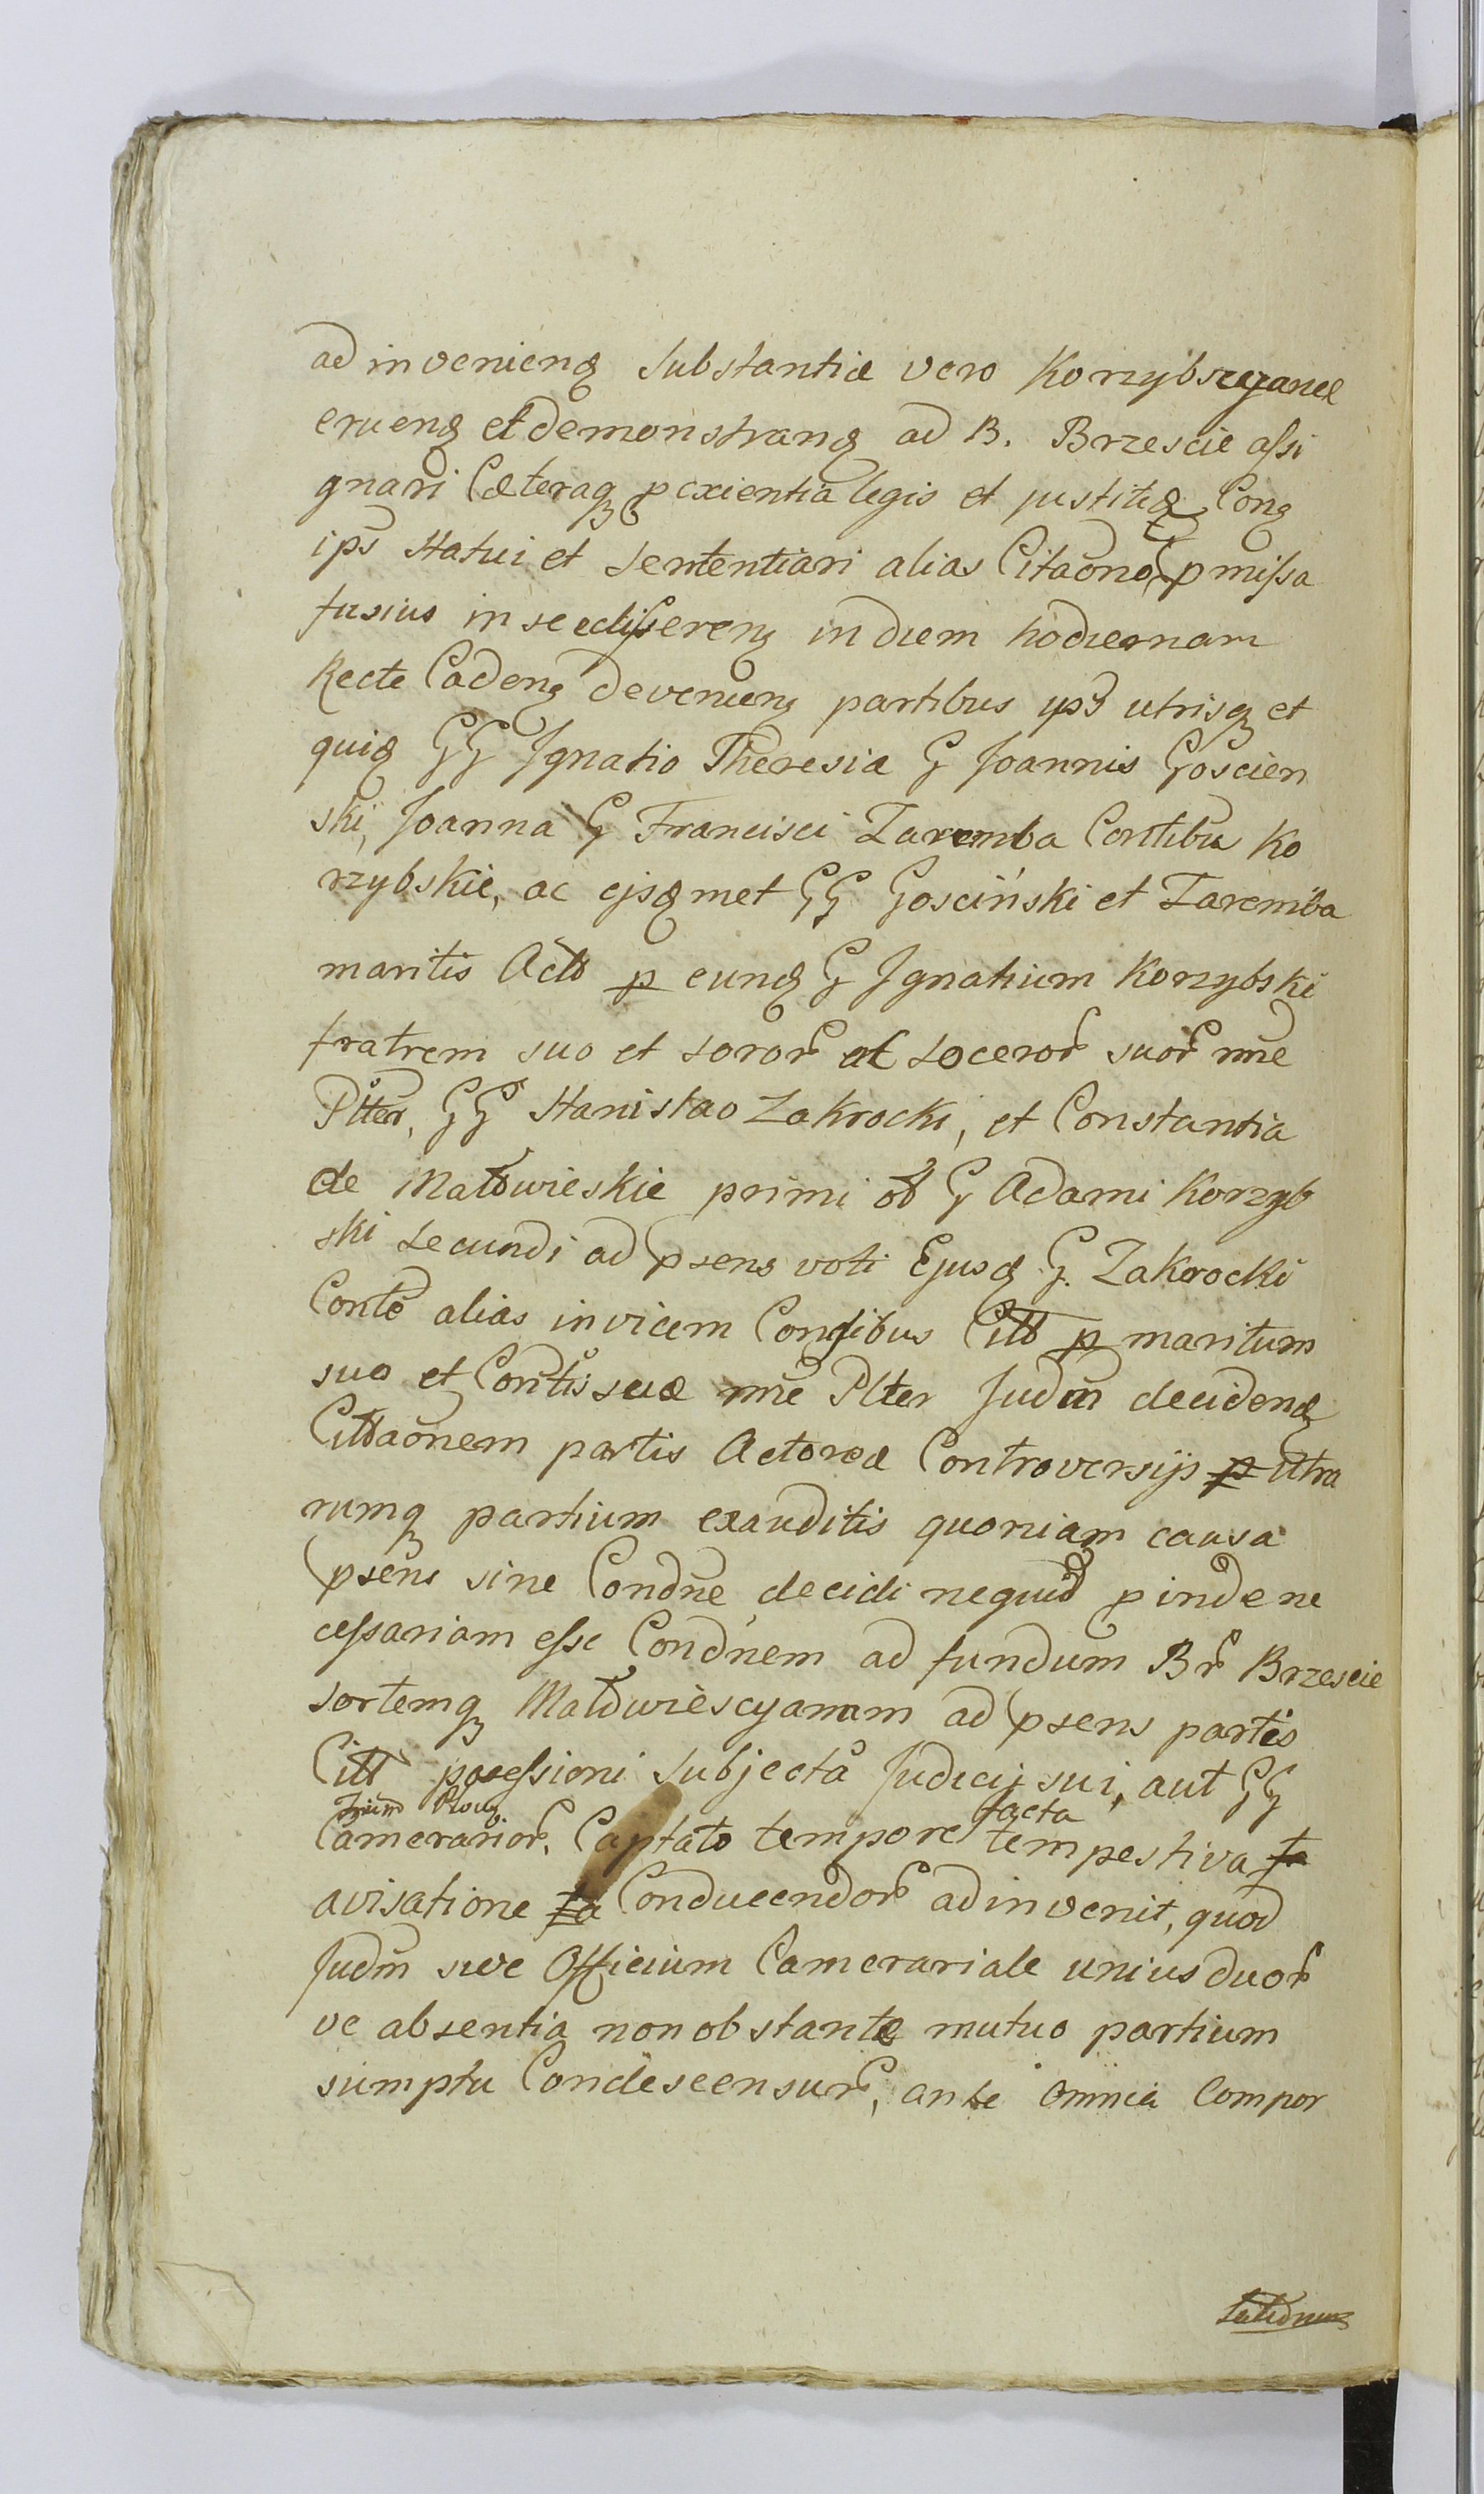 ad invenienq substantiæ vero Korzybscyanæ
eruenq et demonstranq ad B. Brzescie assi
gnari Cæteraq pexientia legis et justitiæ Conq
ips statui et sententiari alias Citaõne pmissa
fusius in se edisserenq in diem hodiernam
Recte Cadenq devenienq partibus ips utrisq et
quiq GG Ignatio Theresia G Joannis Goscien
ski, Joanna G Francisci Zaremba Contibu Ko
rzybskie, ac ejsqmet GG Gosciński et Zaremba
maritis Actt p eunq G Ignatium Korzybski
fratrem suo et soror ac soceror suor nne
Plter, GG Stanislao Zakrocki, et Constantia
de Małowieskie primi ol G Adami Korzyb
ski secundi ad psens voti Ejusq G. Zakrocki
Conte alias invicem Consibus Citt p maritum
suo et Contis suæ nne Plter Judm decidenq
Cittaõnem partis Actoreæ Controversijs p utra
rumq partium exauditis quoniam causa
psens sine Condne decidi nequid pinde ne
cessariam esse Condnem ad fundum Br Brzescie
sortemq Małowiescyanam ad psens partis
Citt posessioni subjecta Judicij sui, aut GG
Camerarior, Captato tempore facta tempestiva
avisatione Conducendor adinvenit, quod
Judm sive Officium Camerariale unius duor
ve absentia non obstante mutuo partium
sumptu Condescensur, ante omnia Compor